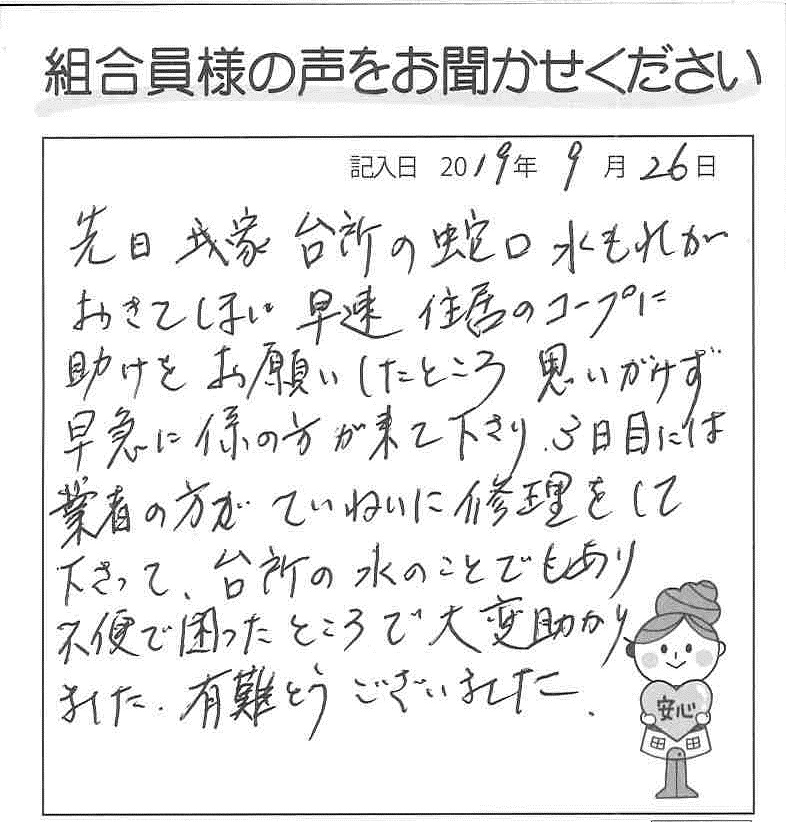 組合員様の声をお聞かせください
記入日 2019年 9月 26日
先日 我家 台所の蛇口 水もれが
おきてしまい 早速 住居のコープに
助けを お願いしたところ 思いがけず
早急に 係の方が来て下さり、3日目には
業者の方が ていねいに 修理をして
下さって、台所の 水のことでもあり
不便で困ったところで大変助かり
ました。有難とう ございました。
安心